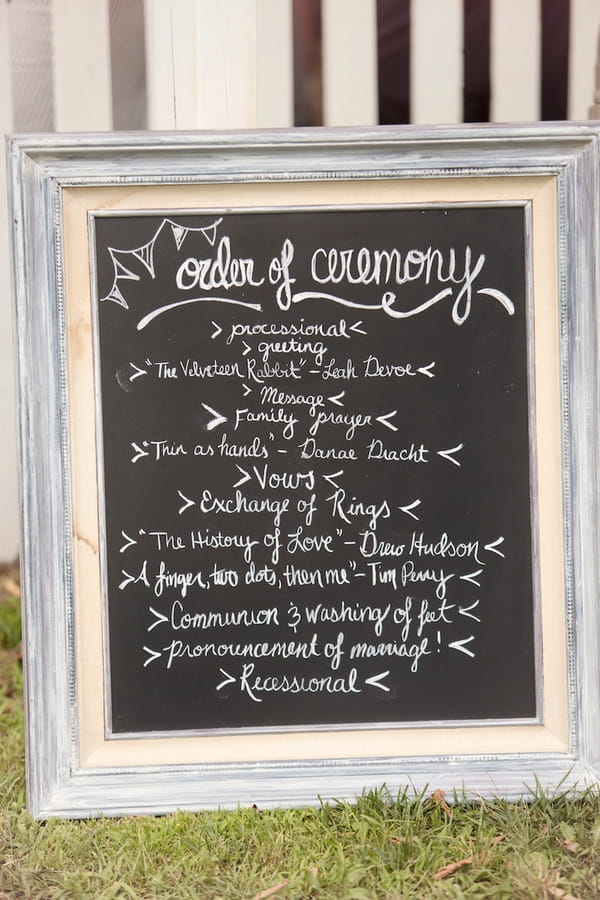 order of ceremony
> processional <
> greeting
> "The Velveteen Rabbit" - Leah Devoe <
> Message <
> Family prayer <
> "Thin as hands" - Danae Dracht <
> Vows <
> Exchange of Rings <
> "The History of Love" - Drew Hudson <
> A finger, two dots, then me" - Tim Perry <
> Communion & washing of feet <
> pronouncement of marriage! <
> Recessional <